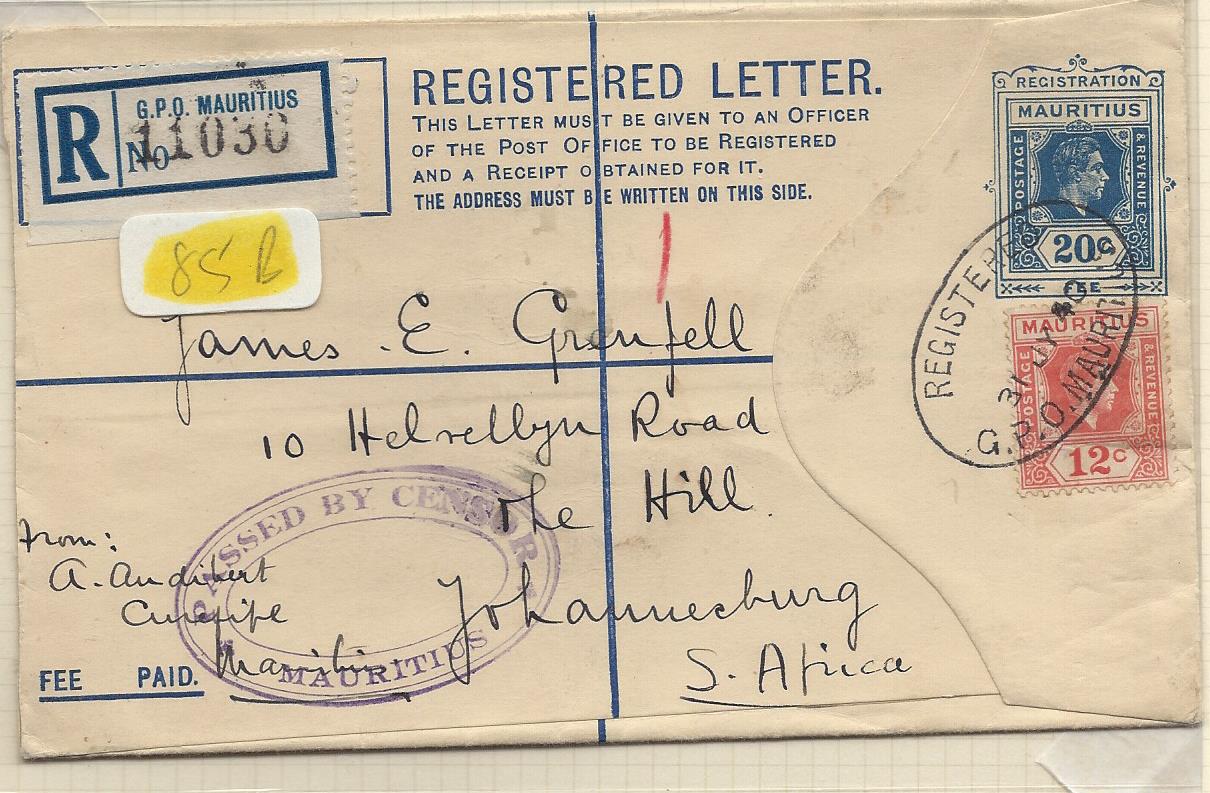 R
G.P.O. MAURITIUS
No 11030
REGISTERED LETTER.
THIS LETTER MUST BE GIVEN TO AN OFFICER
OF THE POST OFFICE TO BE REGISTERED
AND A RECEIPT OBTAINED FOR IT.
THE ADDRESS MUST BE WRITTEN ON THIS SIDE.
REGISTRATION
MAURITIUS
POSTAGE
& REVENUE
20c
FEE
85 B
REGISTERED
31 JY 40
G.P.O. MAURITIUS
MAURITIUS
POSTAGE
& REVENUE
12c
James . E. Grenfell
10 Helvellyn Road
The Hill.
Johannesburg
S. Africa
PASSED BY CENSOR
MAURITIUS
From:
A. Audibert
Curepipe
Mauritius
FEE PAID.